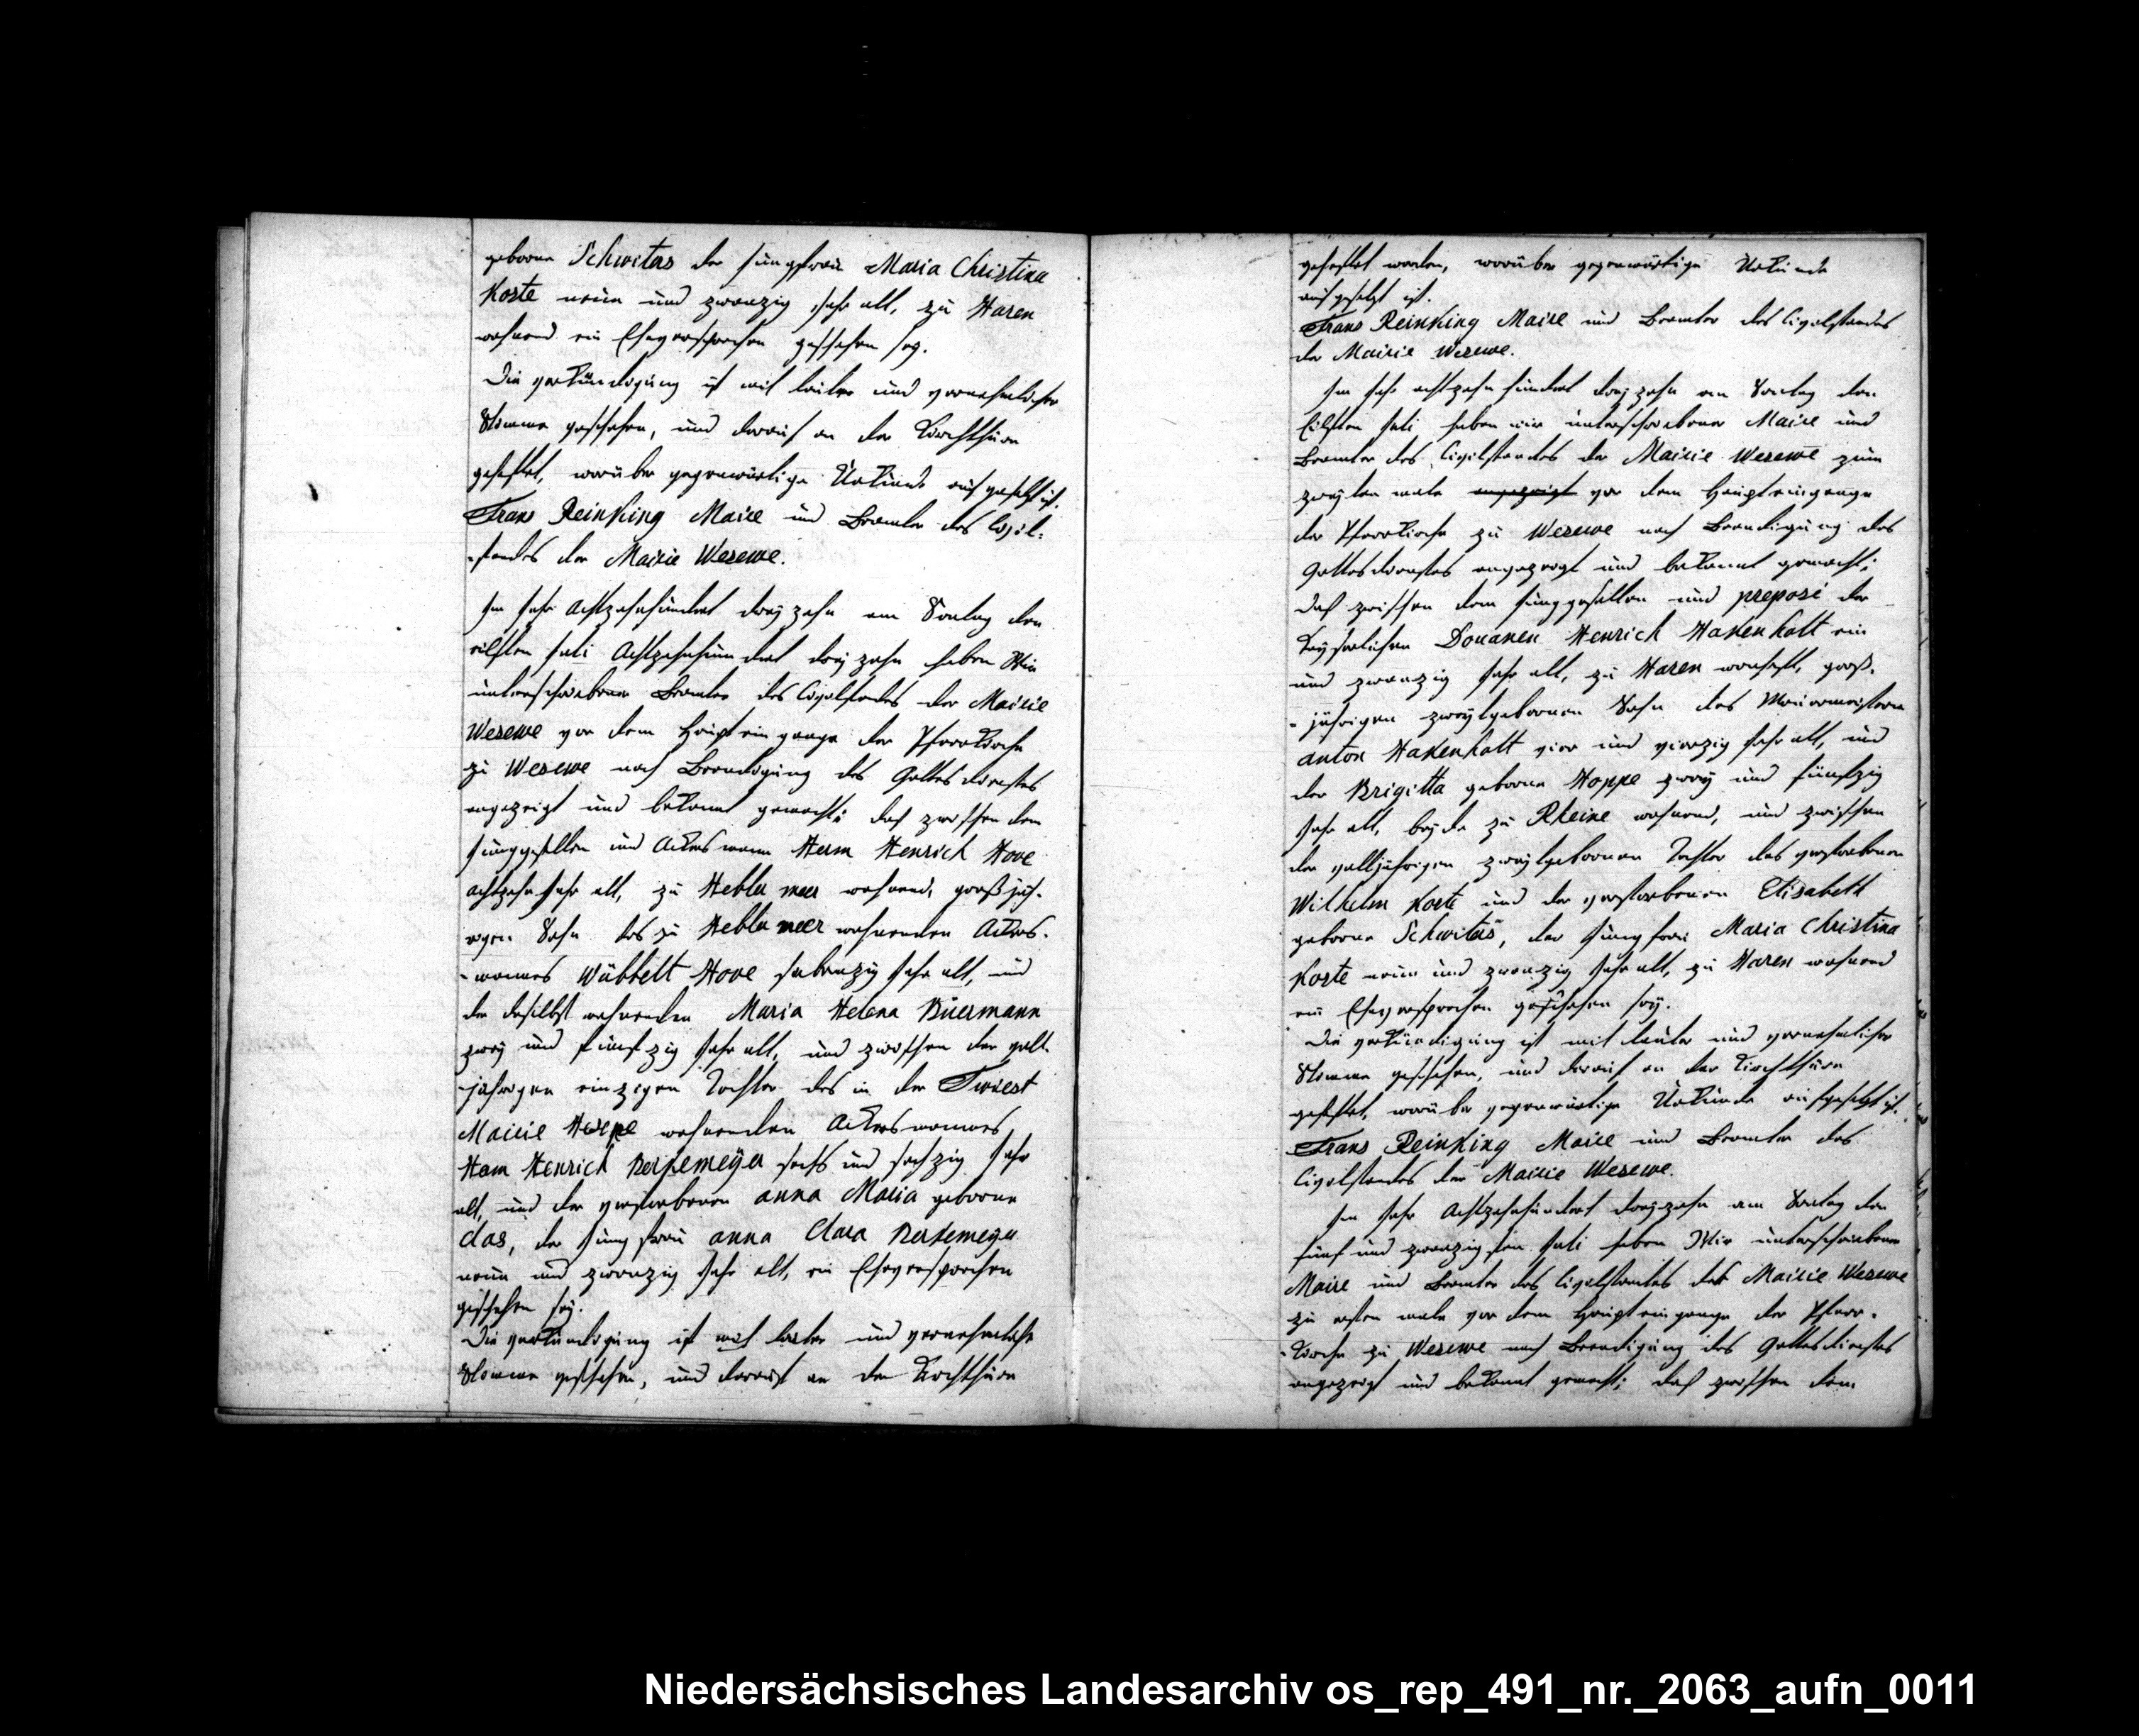 geborne Schwiters der Jungfrau Maria Christina
Korte neun und zwanzig Jahr alt, zu Haren
wohnend ein Eheversprechen geschehen sey.
Die verkündigung ist mit lauter und vernehmlicher
Stimme geschehen, und darauf an der Kirchthüre
geheftet, worüber gegenwärtige Urkunde aufgesetzt ist.
Frans Reinking Maire und Beamter des Civil-
-standes der Mairie Wesewe.
Im Jahr Achtzehnhundert dreyzehn am Sontag den
eilften Juli Achtzehnhundert dreyzehn haben Wir
unterschriebener Beamter des Civilstandes der Mairie
Wesewe vor dem Haupteingange der Pfarrkirche
zu Wesewe nach Beendigung des Gottesdienstes
angezeigt und bekannt gemacht; daß zwischen dem
Junggesellen und Ackersmann Herm Henrich Hove
achtzehn Jahr alt, zu Heblermeer wohnend, großjäh-
rigen Sohn des zu Heblermeer wohnenden Ackers-
-mannes Wübbelt Hove siebenzig Jahr alt, und
der daselbst wohnenden Maria Helena Büermann
zwey und fünfzig Jahr alt, und zwischen der voll-
-jährigen einzigen Tochter des in der Twiest
Mairie Wesewe wohnenden Ackersmannes,
Herm Henrich Berkemeÿer sechs und sechzig Jahr
alt, und der verstorbenen anna Maria geborne
Clas, der Jungfrau anna Clara Berkemeyer
neun und zwanzig Jahr alt, ein Eheversprechen
geschehen sey.
Die verkündigung ist mit lauter und vernehmlicher
Stimme geschehen, und darauf an der Kirchthüre
geheftet worden, worüber gegenwärtige Urkunde
aufgesetzt ist.
Frans Reinking Maire und Beamter des Civilstandes
der Mairie Wesewe.
Im Jahr achtzehnhundert dreyzehn am Sontag den
Eilften Juli haben wir unterschriebener Maire und
Beamter des Civilstandes der Mairie Wesewe zum
zweyten male angezeigt vor dem Haupteingange
der Pfarrkirche zu Wesewe nach Beendigung des
Gottesdienstes angezeigt und bekannt gemacht;
daß zwischen dem Junggesellen und preposé der
Kayserlichen Douanen Henrich Hakenholt ein
und zwanzig Jahr alt, zu Haren wonhaft, groß-
-jährigen zweytgebornen Sohn des Mauermeisters
anton Hakenholt vier und vierzig Jahr alt, und
der Brigitta geborne Hoppe zwey und fünfzig
Jahr alt, beyde zu Rheine wohnend, und zwischen
der volljährigen zweytgebornen Tochter des verstorbenen
Wilhelm Korte und der verstorbenen Elisabeth
geborne Schwiters, der Jungfrau Maria Christina
Korte neun und zwanzig Jahr alt, zu Haren wohnend
ein Eheversprechen geschehen sey.
Die verkündigung ist mit lauter und vernehmlicher
Stimme geschehen, und darauf an der Kirchthüre
geheftet, worüber gegenwärtige Urkunde aufgesetzt ist.
Frans Reinking Maire und Beamter des
Civilstandes der Mairie Wesewe.
Im Jahr Achtzehnhundert dreyzehn am Sontag den
fünf und zwanzigsten Juli haben Wir unterschriebener
Maire und Beamter des Civilstandes der Mairie Wesewe
zu ersten male vor dem Haupteingange der Pfarr-
-kirche zu Wesewe nach Beendigung des Gottesdienstes
angezeigt und bekannt gemacht; daß zwischen dem
Niedersächsisches Landesarchiv os_rep_491_nr._2063_aufn_0011